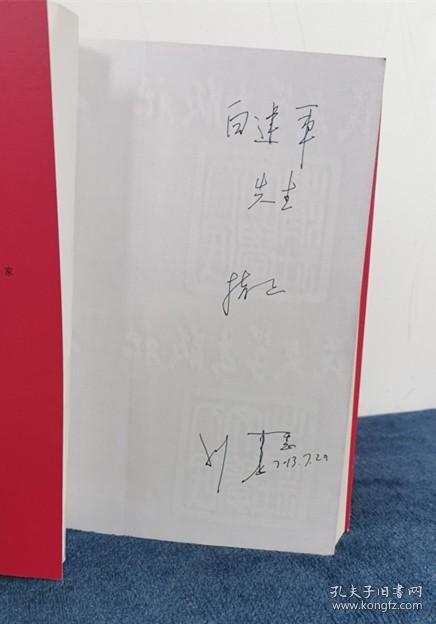 家
白建军
先生
指正
刘
2013.7.29
孔夫子旧书网
www.kongfz.com